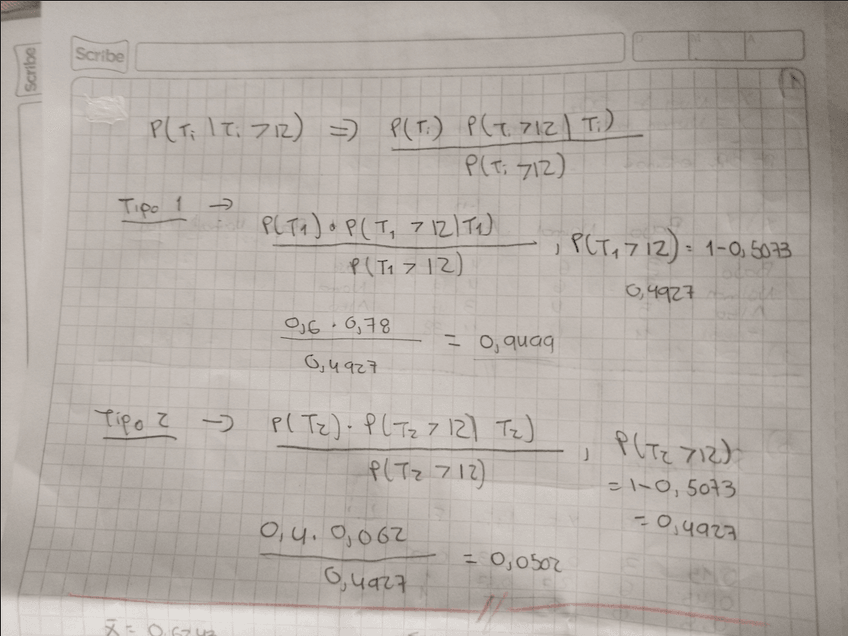 Scribe
Scribe
P(Ti | Ti >12) => P(Ti) P(Ti >12 | Ti)
P(Ti >12)
Tipo 1 →
P(T1) • P(T1 > 12 | T1)
P(T1 > 12)
, P(T1 > 12) = 1-0,5073
0,4927
0,6 . 0,78
0,4927
= 0,9499
Tipo 2 → P(T2) . P(T2 > 12 | T2)
P(T2 > 12)
, P(T2 > 12)
= 1-0,5073
= 0,4927
0,4 . 0,062
0,4927
= 0,0502